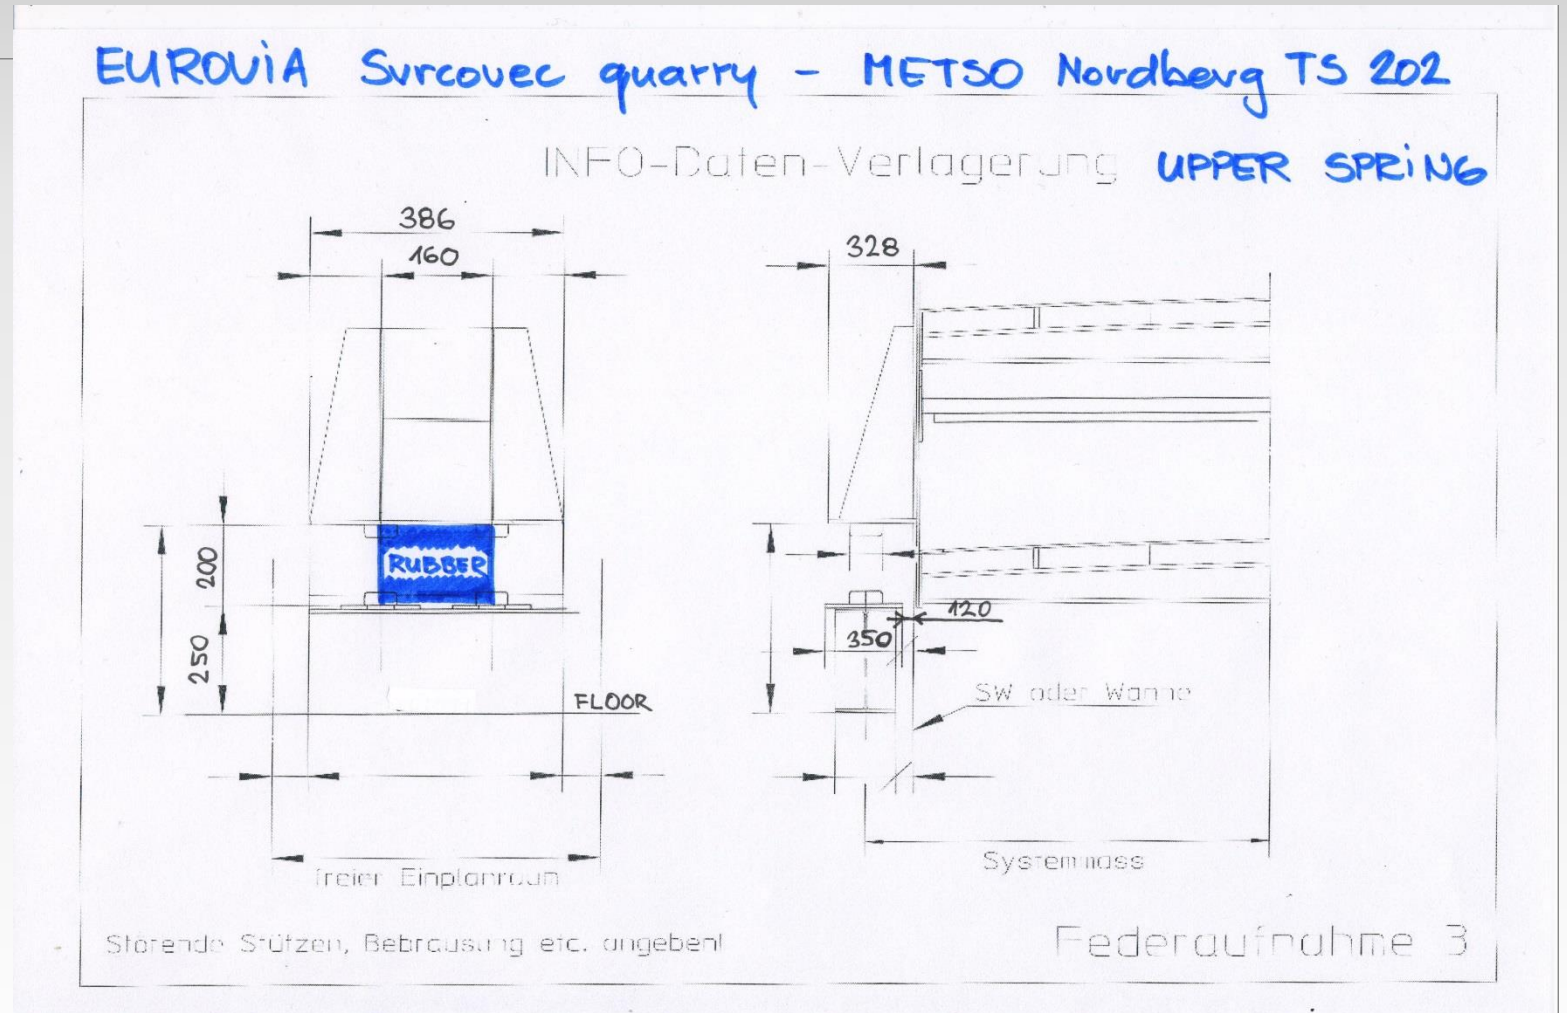 EUROVIA Svrcovec quarry - METSO Nordberg TS 202
INFO-Daten-Verlagerung UPPER SPRING
386
160
328
RUBBER
200
250
120
350
FLOOR
SW oder Wanne
Systemmass
freier Einplanraum
Störende Stützen, Bebrausung etc. angeben!
Federaufnahme 3